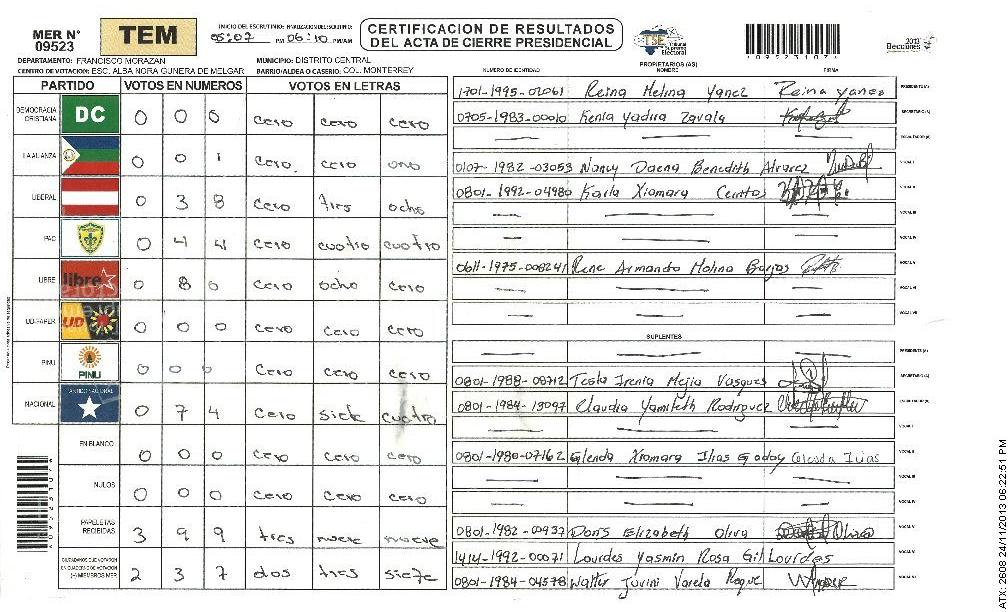 MER N° 09523
TEM
INICIO DEL ESCRUTINIO: FINALIZACION DEL ESCRUTINIO:
05:07 PM 06:10 PM/AM
CERTIFICACION DE RESULTADOS
DEL ACTA DE CIERRE PRESIDENCIAL
TSE Tribunal Supremo Electoral
2013 Elecciones
DEPARTAMENTO: FRANCISCO MORAZAN
MUNICIPIO: DISTRITO CENTRAL
CENTRO DE VOTACION: ESC. ALBA NORA GUNERA DE MELGAR
BARRIO/ALDEA O CASERIO: COL. MONTERREY
PARTIDO VOTOS EN NUMEROS VOTOS EN LETRAS
DEMOCRACIA CRISTIANA DC 0 0 0 cero cero cero
LA ALIANZA 0 0 1 cero cero uno
LIBERAL 0 3 8 cero tres ocho
PAC 0 4 4 cero cuatro cuatro
LIBRE libre 0 8 0 cero ocho cero
UD-FAPER UD 0 0 0 cero cero cero
PINU PINU 0 0 0 cero cero cero
NACIONAL PARTIDO NACIONAL 0 7 4 cero siete cuatro
EN BLANCO 0 0 0 cero cero cero
NULOS 0 0 0 cero cero cero
PAPELETAS RECIBIDAS 3 9 9 tres nueve nueve
CIUDADANOS QUE VOTARON EN CUADERNO DE VOTACION (+) MIEMBROS MER 2 3 7 dos tres siete
PROPIETARIOS (AS)
NUMERO DE IDENTIDAD NOMBRE FIRMA
1701-1995-02061 Reina Melina Yanez Reina yanes PRESIDENTE (A)
0705-1983-00010 Kenia Yadira Zavala SECRETARIO (A)
ESCRUTADOR (A)
0107-1982-03053 Nancy Daena Benedith Alvarez VOCAL I
0801-1992-04980 Karla Xiomara VOCAL II
VOCAL III
VOCAL IV
0611-1975-008241 Rene Armando Molina Borjas VOCAL V
VOCAL VI
VOCAL VII
SUPLENTES
PRESIDENTE (A)
0801-1988-08712 Tesla Irenia Mejia Vasques SECRETARIO (A)
0801-1984-13097 Claudia Yamileth Rodriguez ESCRUTADOR (A)
VOCAL I
0801-1980-07162 Glenda Xiomara Ilias Godoy Glenda Ilias VOCAL II
VOCAL III
VOCAL IV
0801-1982-00937 Doris Elizabeth Oliva VOCAL V
1414-1992-00071 Lourdes Yasmin Rosa Gil Lourdes
0801-1984-04578 Walter Jovini Varela
ATX: 2608 24/11/2013 06:22:51 PM